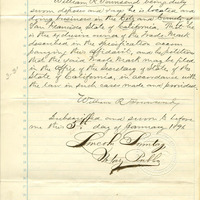 William R. Townsend being duly
sworn deposes and says he is located and
doing business in the City and County of
San Francisco State of California. That he
is the exclusive owner of the Trade Mark
described in the specification accom-
panying this affidavit, and petition
that the said Trade Mark may be
filed in the Office of the Secretary of State of the
State of California, in accordance with
the law in such cases made and provided.
William R. Townsend
Subscribed and sworn to before
me this 3rd day of January 1896
Lincoln
Notary Public